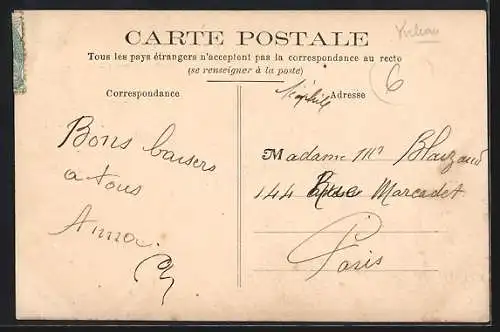 CARTE POSTALE
Tous les pays étrangers n'acceptent pas la correspondance au recto
(se renseigner à la poste)
6
Correspondance
Adresse
Bons baisers
a tous
Anna.
Madame
144 Rue Marcadet
Paris